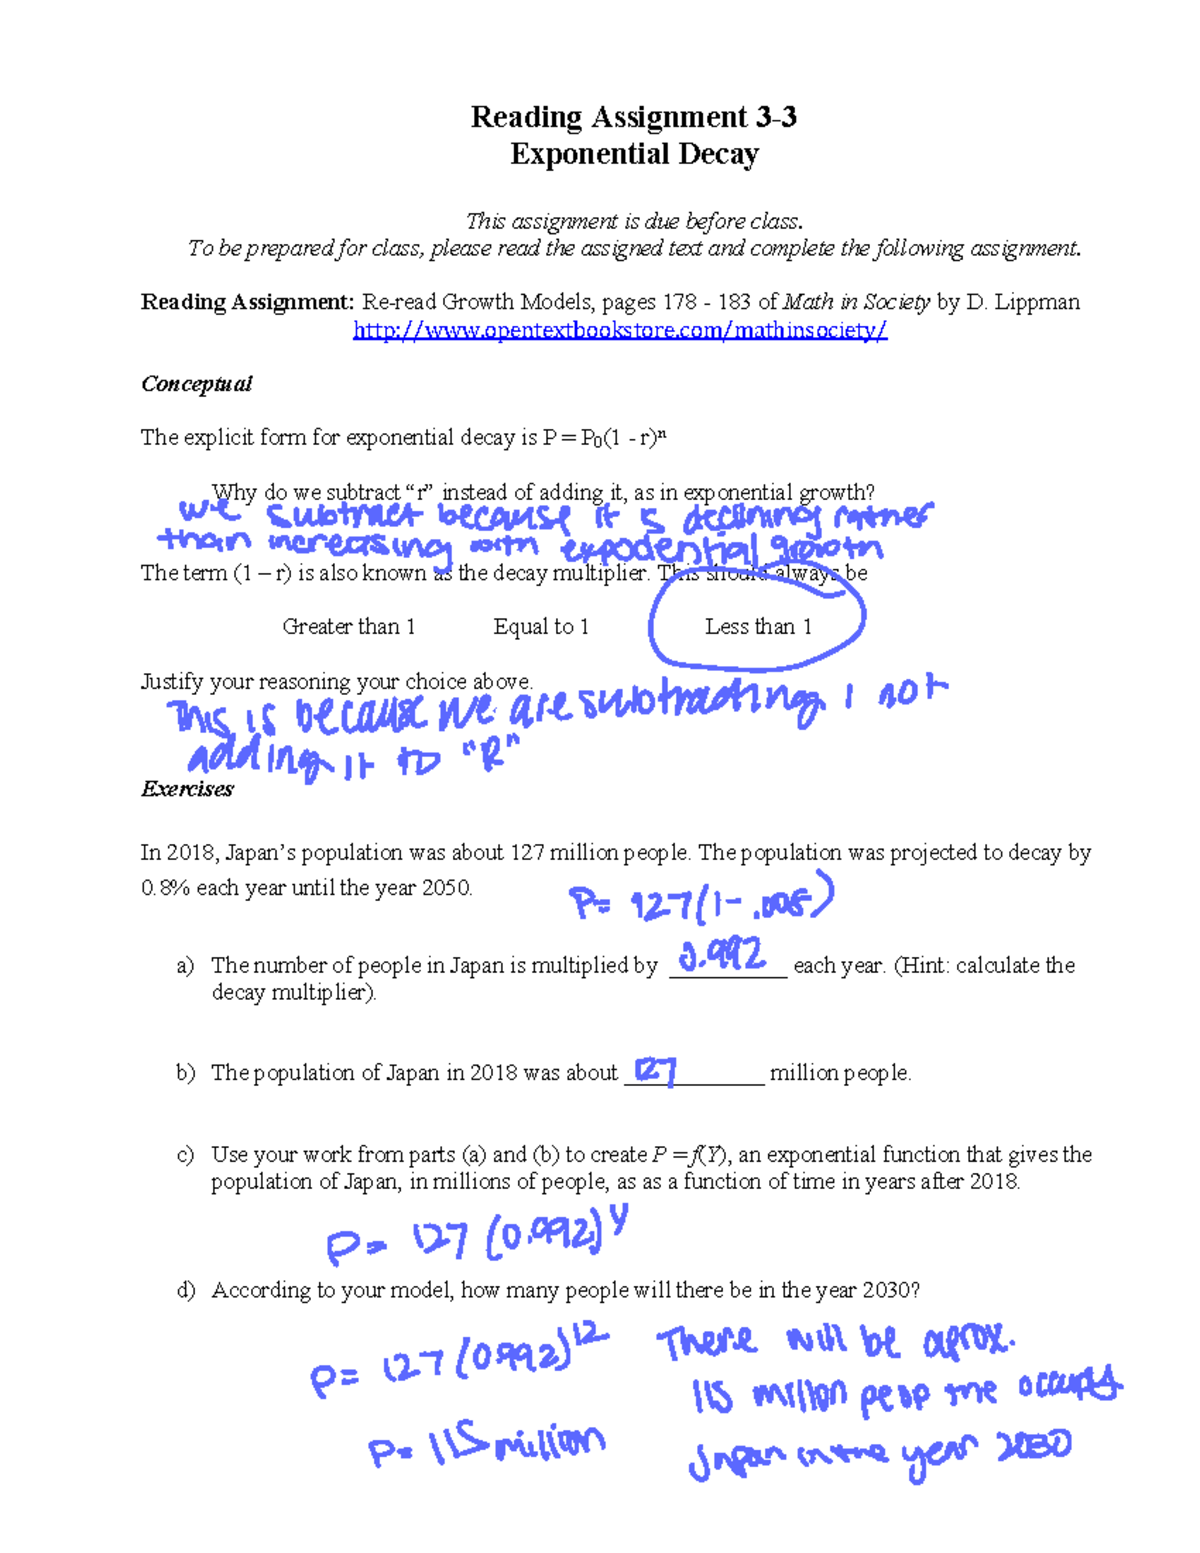 Reading Assignment 3-3
Exponential Decay
This assignment is due before class.
To be prepared for class, please read the assigned text and complete the following assignment.
Reading Assignment: Re-read Growth Models, pages 178 - 183 of Math in Society by D. Lippman
http://www.opentextbookstore.com/mathinsociety/
Conceptual
The explicit form for exponential decay is P = P₀(1 - r)ⁿ
Why do we subtract “r” instead of adding it, as in exponential growth?
we subtract because it is declining rather
than increasing with expodential growth
The term (1 – r) is also known as the decay multiplier. This should always be
Greater than 1 Equal to 1 Less than 1
Justify your reasoning your choice above.
This is because we are subtracting 1 not
adding it to "R"
Exercises
In 2018, Japan’s population was about 127 million people. The population was projected to decay by
0.8% each year until the year 2050.
P= 127(1- .008)
a) The number of people in Japan is multiplied by 0.992 each year. (Hint: calculate the
decay multiplier).
b) The population of Japan in 2018 was about 127 million people.
c) Use your work from parts (a) and (b) to create P = f(Y), an exponential function that gives the
population of Japan, in millions of people, as as a function of time in years after 2018.
P= 127 (0.992)^Y
d) According to your model, how many people will there be in the year 2030?
P= 127 (0.992)^12 There will be aprox.
115 million
P= 115 million Japan in the year 2030